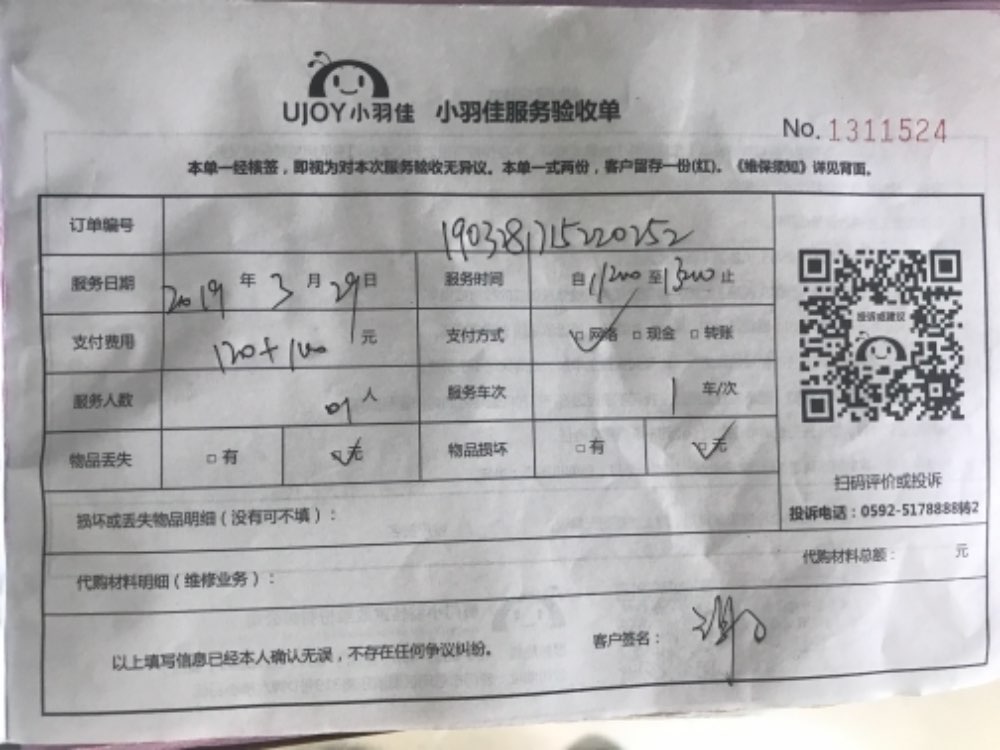 UJOY小羽佳 小羽佳服务验收单
No. 1311524
本单一经核签，即视为对本次服务验收无异议。本单一式两份，客户留存一份(红)。《维保须知》详见背面。
订单编号 1903281715220252
服务日期 2019 年 3 月 29 日 服务时间 自 至 止
支付费用 120+100 元 支付方式 □ 网络 □ 现金 □ 转账
服务人数 01 人 服务车次 1 车/次
物品丢失 □ 有 □ 无 物品损坏 □ 有 □ 无
投诉或建议
扫码评价或投诉
投诉电话：0592-5178888转2
损坏或丢失物品明细（没有可不填）：
代购材料明细（维修业务）： 代购材料总额： 元
以上填写信息已经本人确认无误，不存在任何争议纠纷。 客户签名：